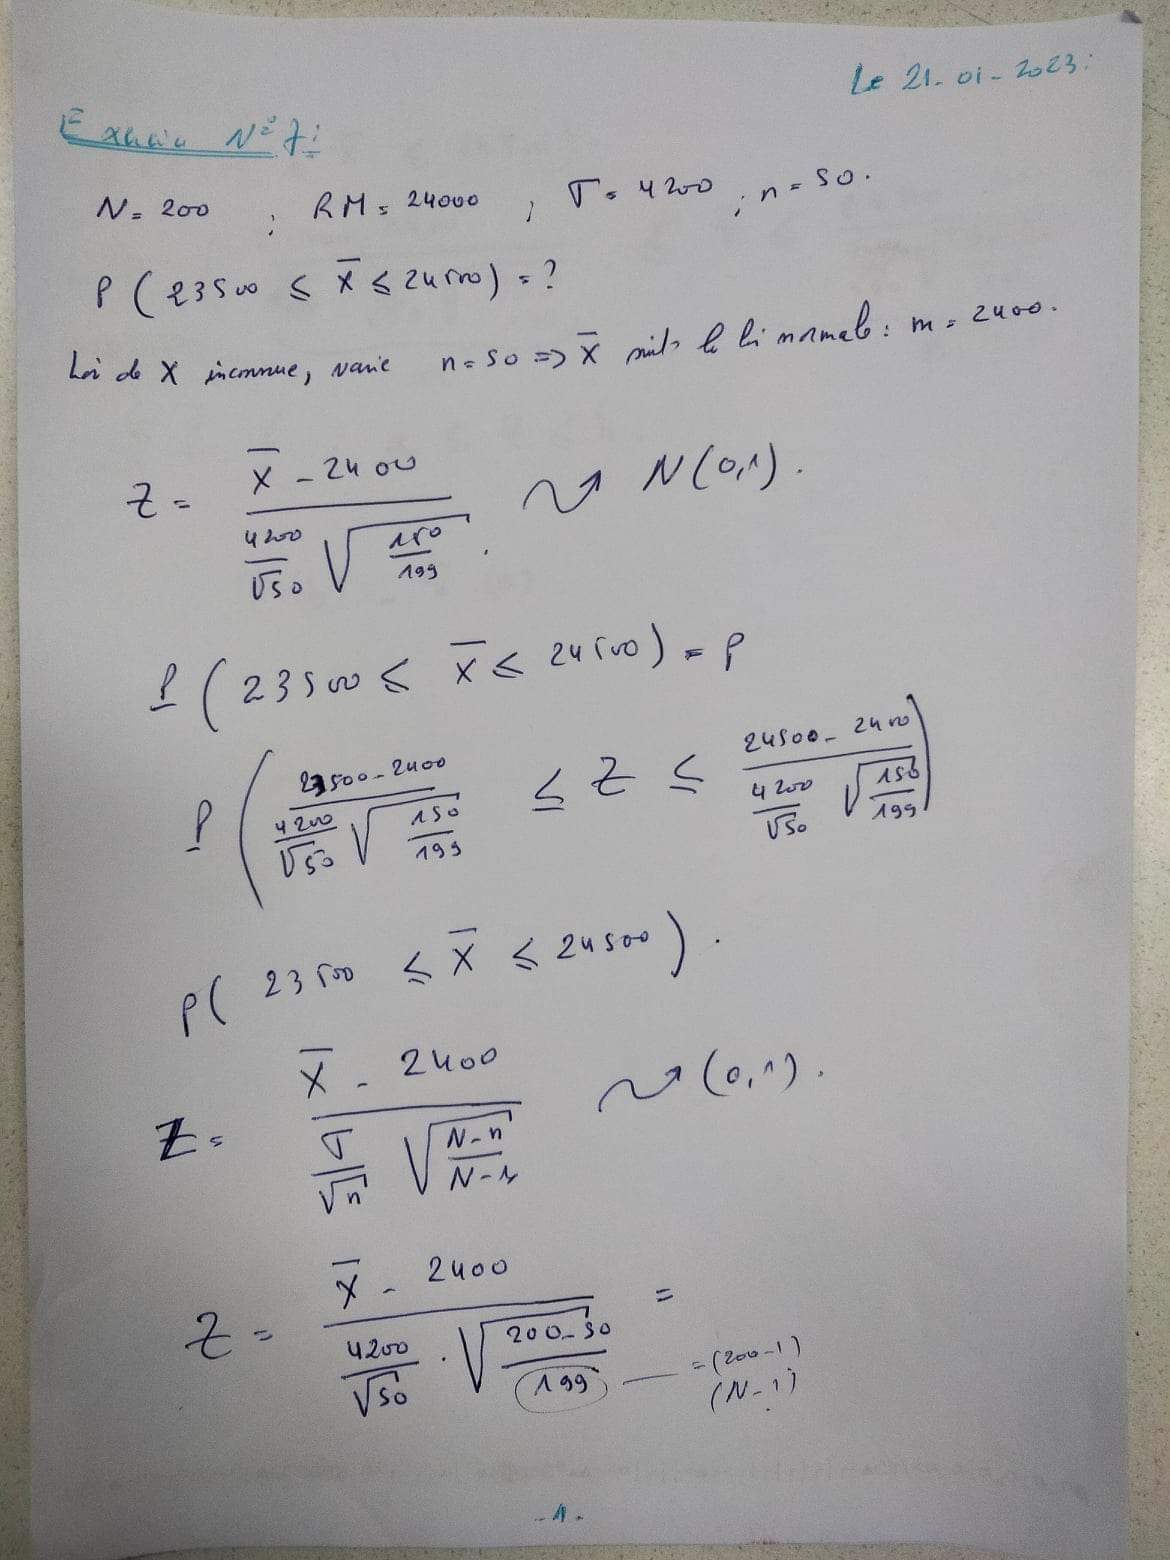 Le 21-01-2023:
Exercice N°7:
N = 200 ; RM = 24000 ; σ = 4200 ; n = 50.
P ( 23500 ≤ X̄ ≤ 24500 ) = ?
Loi de X inconnue, varie n = 50 => X̄ suit la loi normale : m = 2400.
Z = (X̄ - 2400) / (4200/√50 √(150/199)) ⤳ N(0,1).
P ( 23500 ≤ X̄ ≤ 24500 ) = P
P ( (23500 - 2400) / (4200/√50 √(150/199)) ≤ Z ≤ (24500 - 2400) / (4200/√50 √(150/199)) )
P( 23500 ≤ X̄ ≤ 24500 ).
Z = (X̄ - 2400) / (σ/√n √((N-n)/(N-1))) ⤳ (0,1).
Z = (X̄ - 2400) / (4200/√50 . √((200-50)/199)) =
= (200-1)
(N-1)
- 1 -